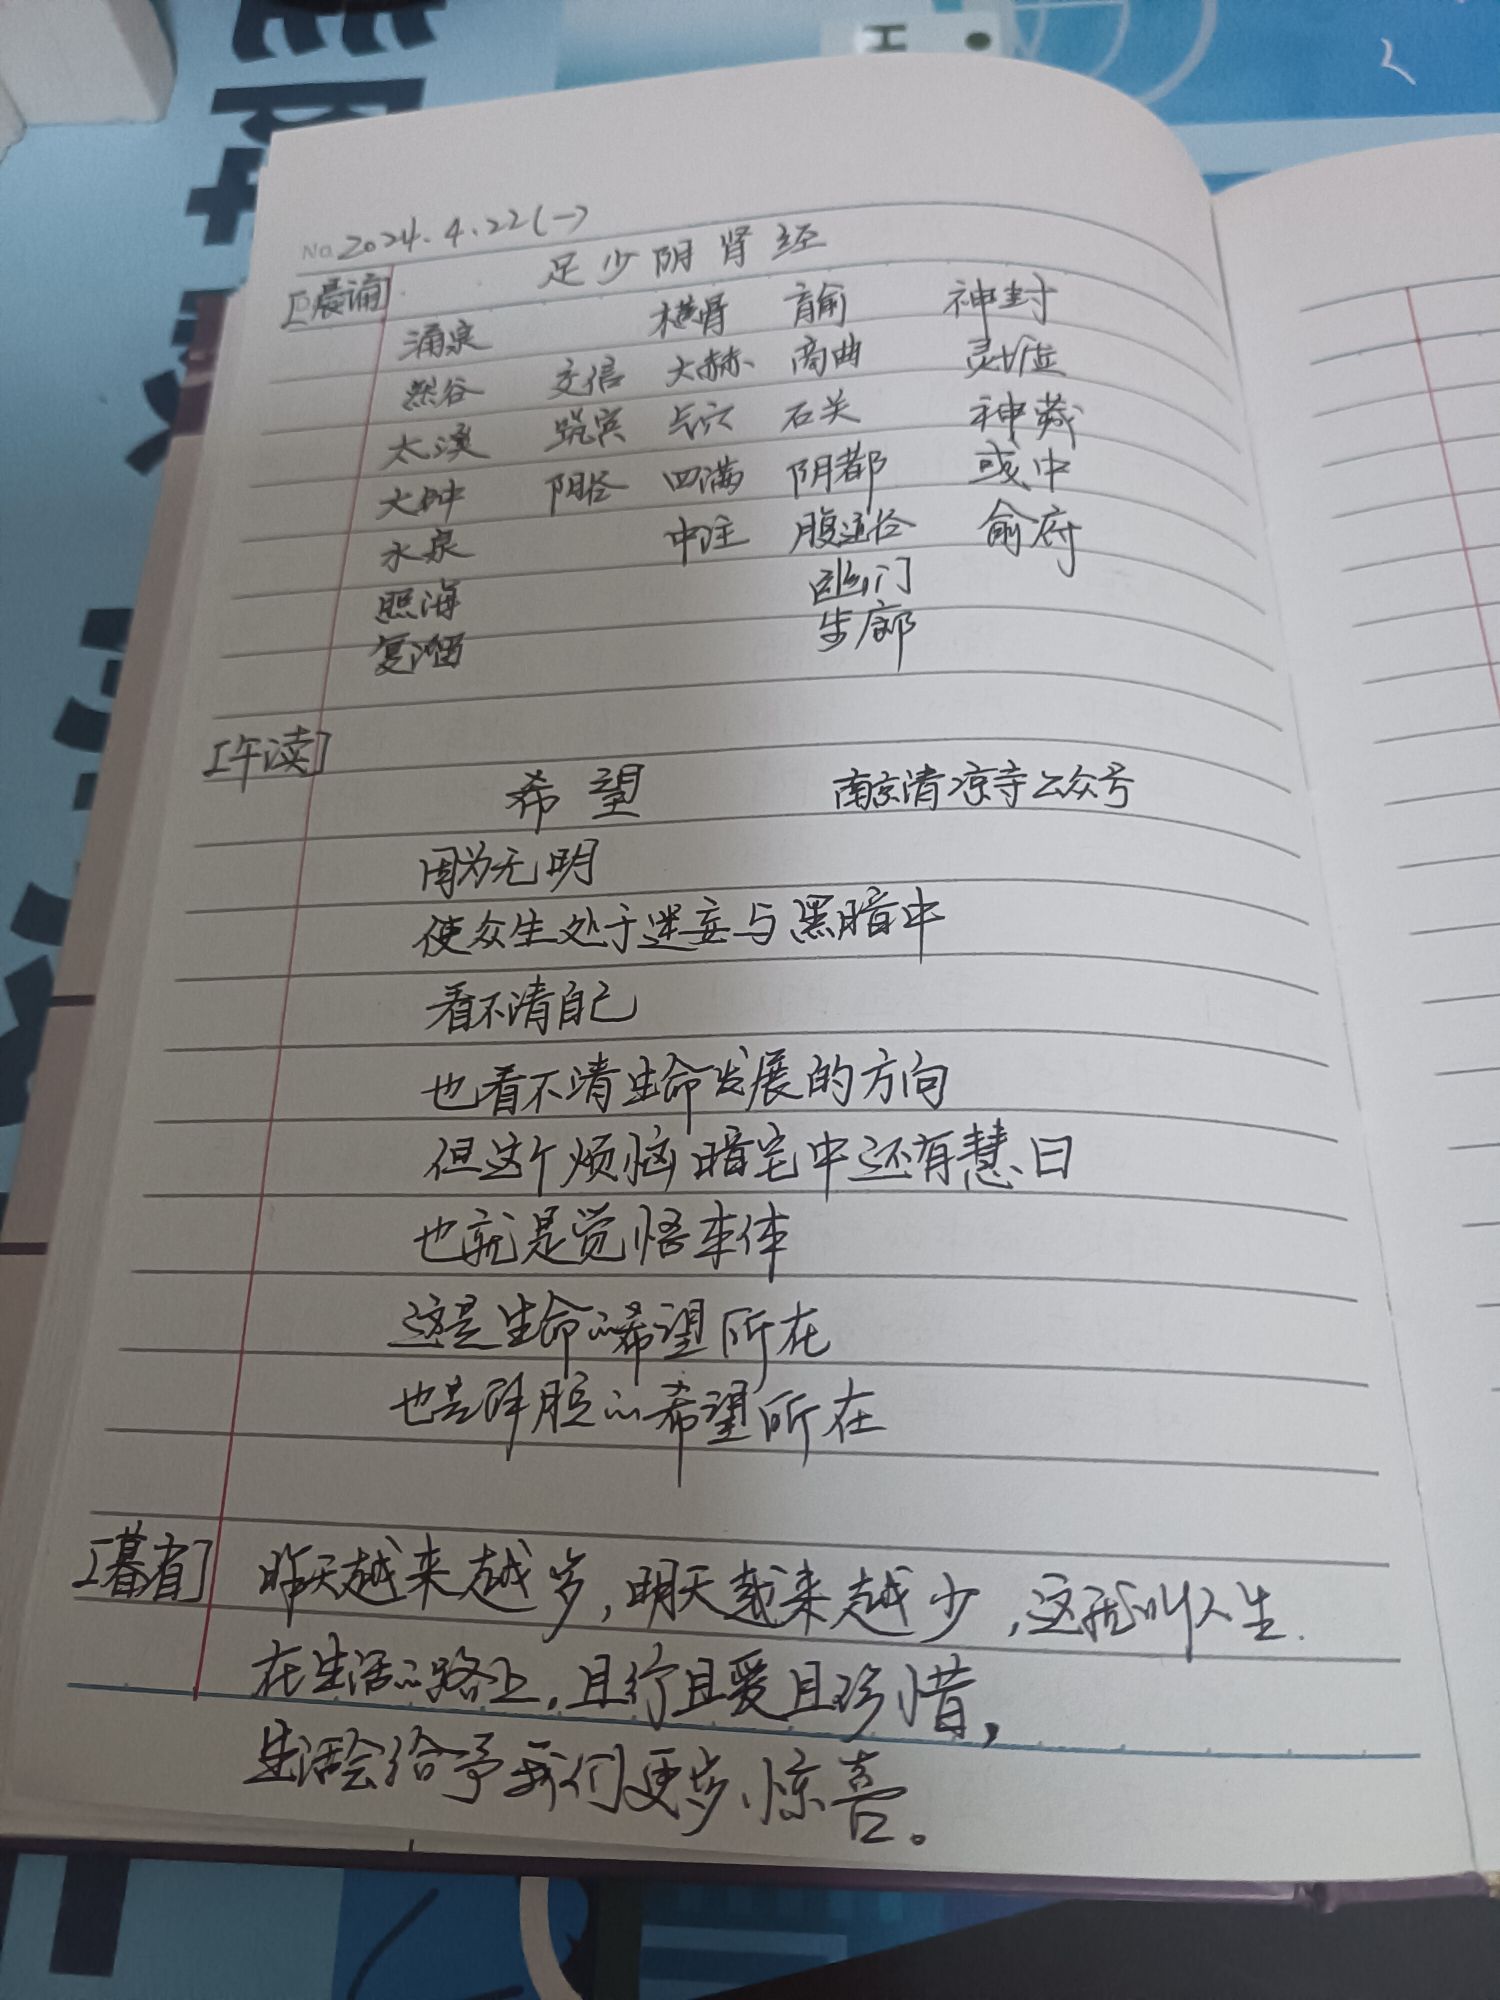 No. 2024.4.22(一)
[晨诵] 足少阴肾经
涌泉 横骨 肓俞 神封
然谷 交信 大赫 商曲 灵墟
太溪 筑宾 气穴 石关 神藏
大钟 阴谷 四满 阴都 彧中
水泉 中注 腹通谷 俞府
照海 幽门
复溜 步廊
[午读]
希望 南京清凉寺公众号
因为无明
使众生处于迷妄与黑暗中
看不清自己
也看不清生命发展的方向
但这个烦恼暗宅中还有慧日
也就是觉悟本体
这是生命的希望所在
也是解脱的希望所在
[暮省] 昨天越来越多,明天越来越少,这就叫人生.
在生活的路上,且行且爱且珍惜,
生活会给予我们更多惊喜。